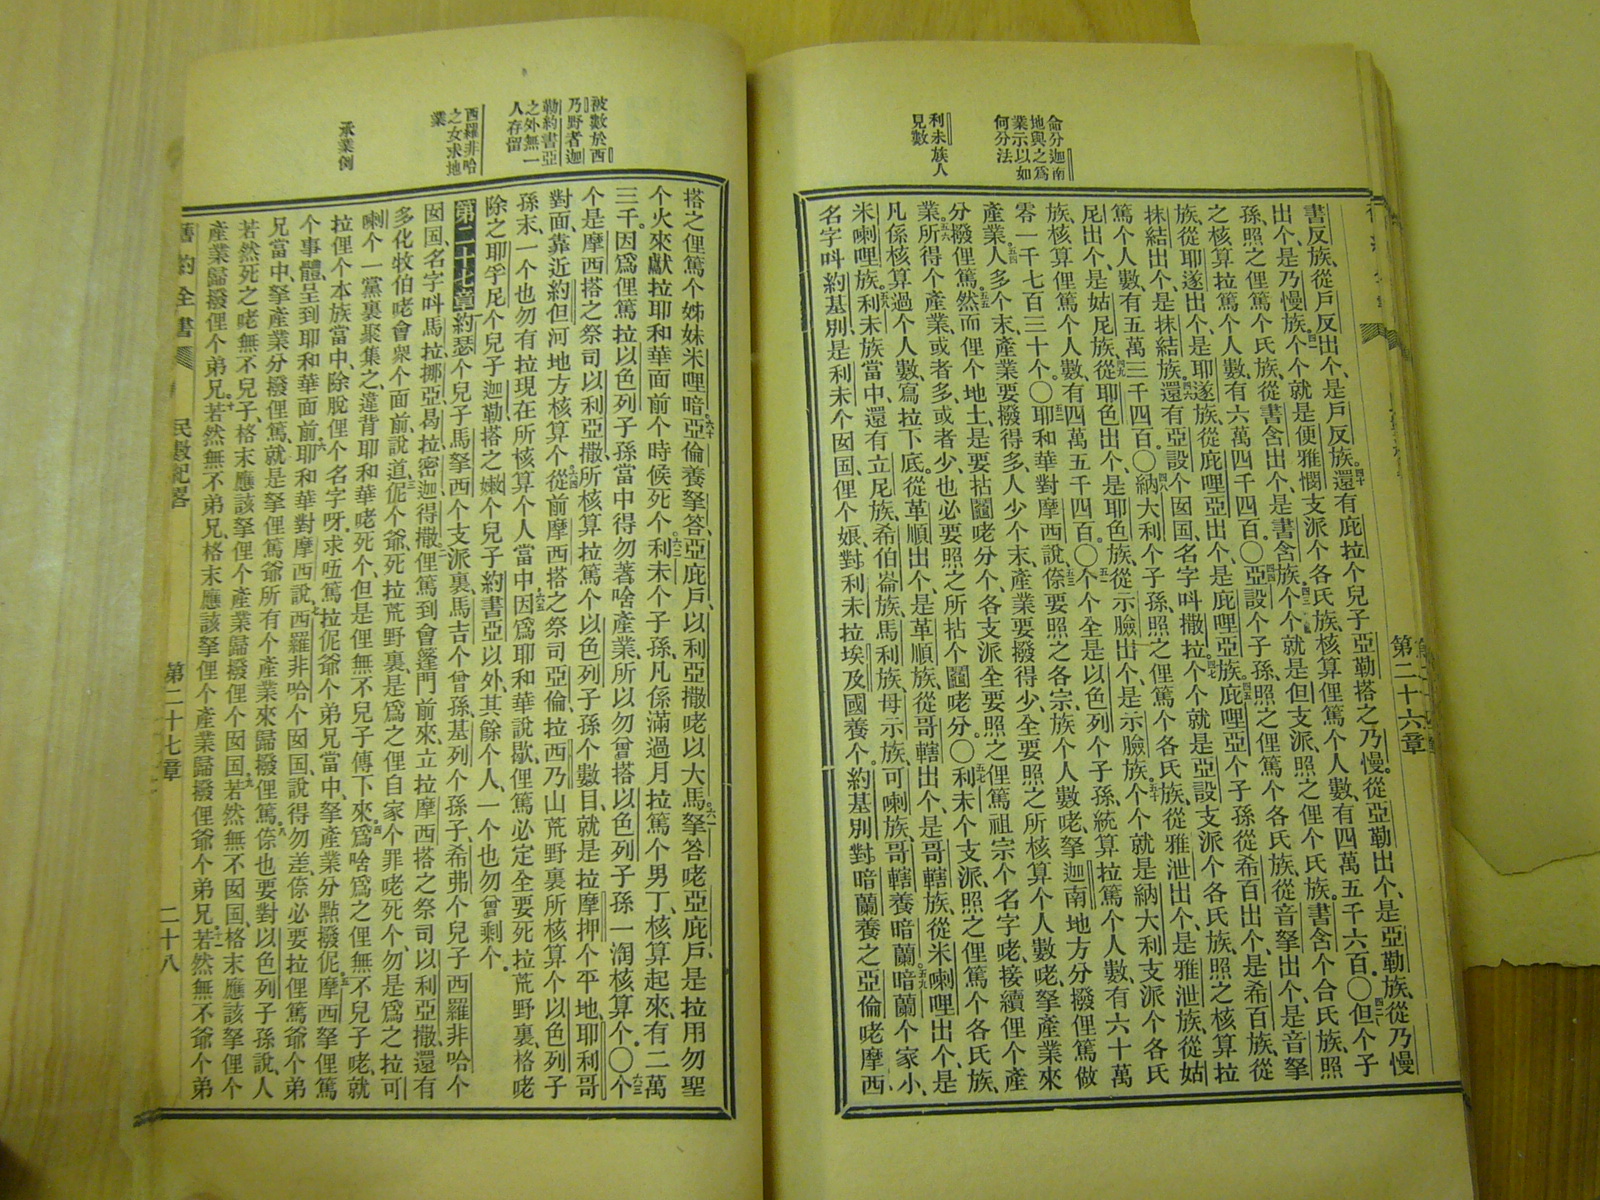 命分迦南
地與之爲
業示以如
何分法
利未族人
見數
書反族、從戶反出个、是戶反族。還有庇拉个兒子亞勒搭之乃慢。從亞勒出个、是亞勒族、從乃慢
出个、是乃慢族。个个就是便雅憫支派个各氏族、核算俚篤个人數、有四萬五千六百。〇但个子
孫、照之俚篤个氏族、從書含出个、是書含族。个个就是但支派、照之俚个氏族。書含个合氏族、照
之核算拉篤个人數、有六萬四千四百。〇亞設个子孫、照之俚篤个各氏族、從音拏出个、是音拏
族、從耶遂出个、是耶遂族、從庇哩亞出个、是庇哩亞族。庇哩亞个子孫、從希百出个、是希百族、從
抹結出个、是抹結族。還有亞設个囡囯、名字呌撒拉。个个就是亞設支派个各氏族、照之核算拉
篤个人數、有五萬三千四百。〇納大利个子孫、照之俚篤个各氏族、從雅泄出个、是雅泄族、從姑
尼出个、是姑尼族、從耶色出个、是耶色族、從示臉出个、是示臉族。个个就是納大利支派个各氏
族、核算俚篤个人數、有四萬五千四百。〇个个全是以色列个子孫、統算拉篤个人數、有六十萬
零一千七百三十个。〇耶和華對摩西說、倷要照之各宗族个人數咾、拏迦南地方分撥俚篤做
產業。人多个末、產業要撥得多、人少个末、產業要撥得少、全要照之所核算个人數咾、拏產業來
分撥俚篤。然而俚个地土、是要拈鬮咾分个、各支派全要照之俚篤祖宗个名字咾、接續俚个產
業。所得个產業、或者多、或者少、也必要照之所拈个鬮咾分。〇利未个支派、照之俚篤个各氏族、
凡係核算過个人數、寫拉下底。從革順出个、是革順族、從哥轄出个、是哥轄族、從米喇哩出个、是
米喇哩族。利未族當中、還有立尼族、希伯崙族、馬利族、母示族、可喇族、哥轄養暗蘭。暗蘭个家小、
名字呌約基別、是利未个囡囯、俚个娘、對利未拉埃及國養个。約基別對暗蘭養之亞倫咾摩西、
第二十六章
被數於西
乃野者迦
勒約書亞
之外無一
人存留
西羅非哈
之女求地
業
承業例
搭之俚篤个姊妹米哩暗。亞倫養拏答、亞庇戶、以利亞撒咾以大馬。拏答咾亞庇戶、是拉用勿聖
个火來獻拉耶和華面前个時候死个。利未个子孫、凡係滿過月拉篤个男丁、核算起來、有二萬
三千。因爲俚篤拉以色列子孫當中得勿著啥產業、所以勿曾搭以色列子孫一淘核算个。〇个
个是摩西搭之祭司以利亞撒、所核算拉篤个以色列子孫个數目、就是拉摩押个平地耶利哥
對面、靠近約但河地方核算个。從前摩西搭之祭司亞倫、拉西乃山荒野裏所核算个以色列子
孫末、一个也勿有拉現在所核算个人當中。因爲耶和華說歇、俚篤必定全要死拉荒野裏、格咾
除之耶孚尼个兒子迦勒、搭之嫩个兒子約書亞以外、其餘个人、一个也勿曾剩个。
第二十七章約瑟个兒子馬拏西个支派裏、馬吉个曾孫、基列个孫子、希弗个兒子西羅非哈个
囡囯、名字呌馬拉、挪亞、曷拉、密迦、得撒。俚篤到會篷門前來、立拉摩西搭之祭司以利亞撒、還有
多化牧伯咾會衆个面前、說道、伲个爺死拉荒野裏、是爲之俚自家个罪咾死个、勿是爲之拉可
喇个一黨裏聚集之、違背耶和華咾死个、但是俚無不兒子傳下來。爲啥爲之俚無不兒子咾、就
拉俚个本族當中、除脫俚个名字呀、求㕶篤拉伲爺个弟兄當中、拏產業分點撥伲。摩西拏俚篤
个事體、呈到耶和華面前。耶和華對摩西說、西羅非哈个囡囯說得勿差、倷必要拉俚篤爺个弟
兄當中、拏產業分撥俚篤、就是拏俚篤爺所有个產業來歸撥俚篤。倷也要對以色列子孫說、人
若然死之咾無不兒子、格末應該拏俚个產業歸撥俚个囡囯。若然無不囡囯、格末應該拏俚个
產業歸撥俚个弟兄。若然無不弟兄、格末應該拏俚个產業歸撥俚爺个弟兄。若然無不爺个弟
舊約全書
民數紀畧
第二十七章
二十八